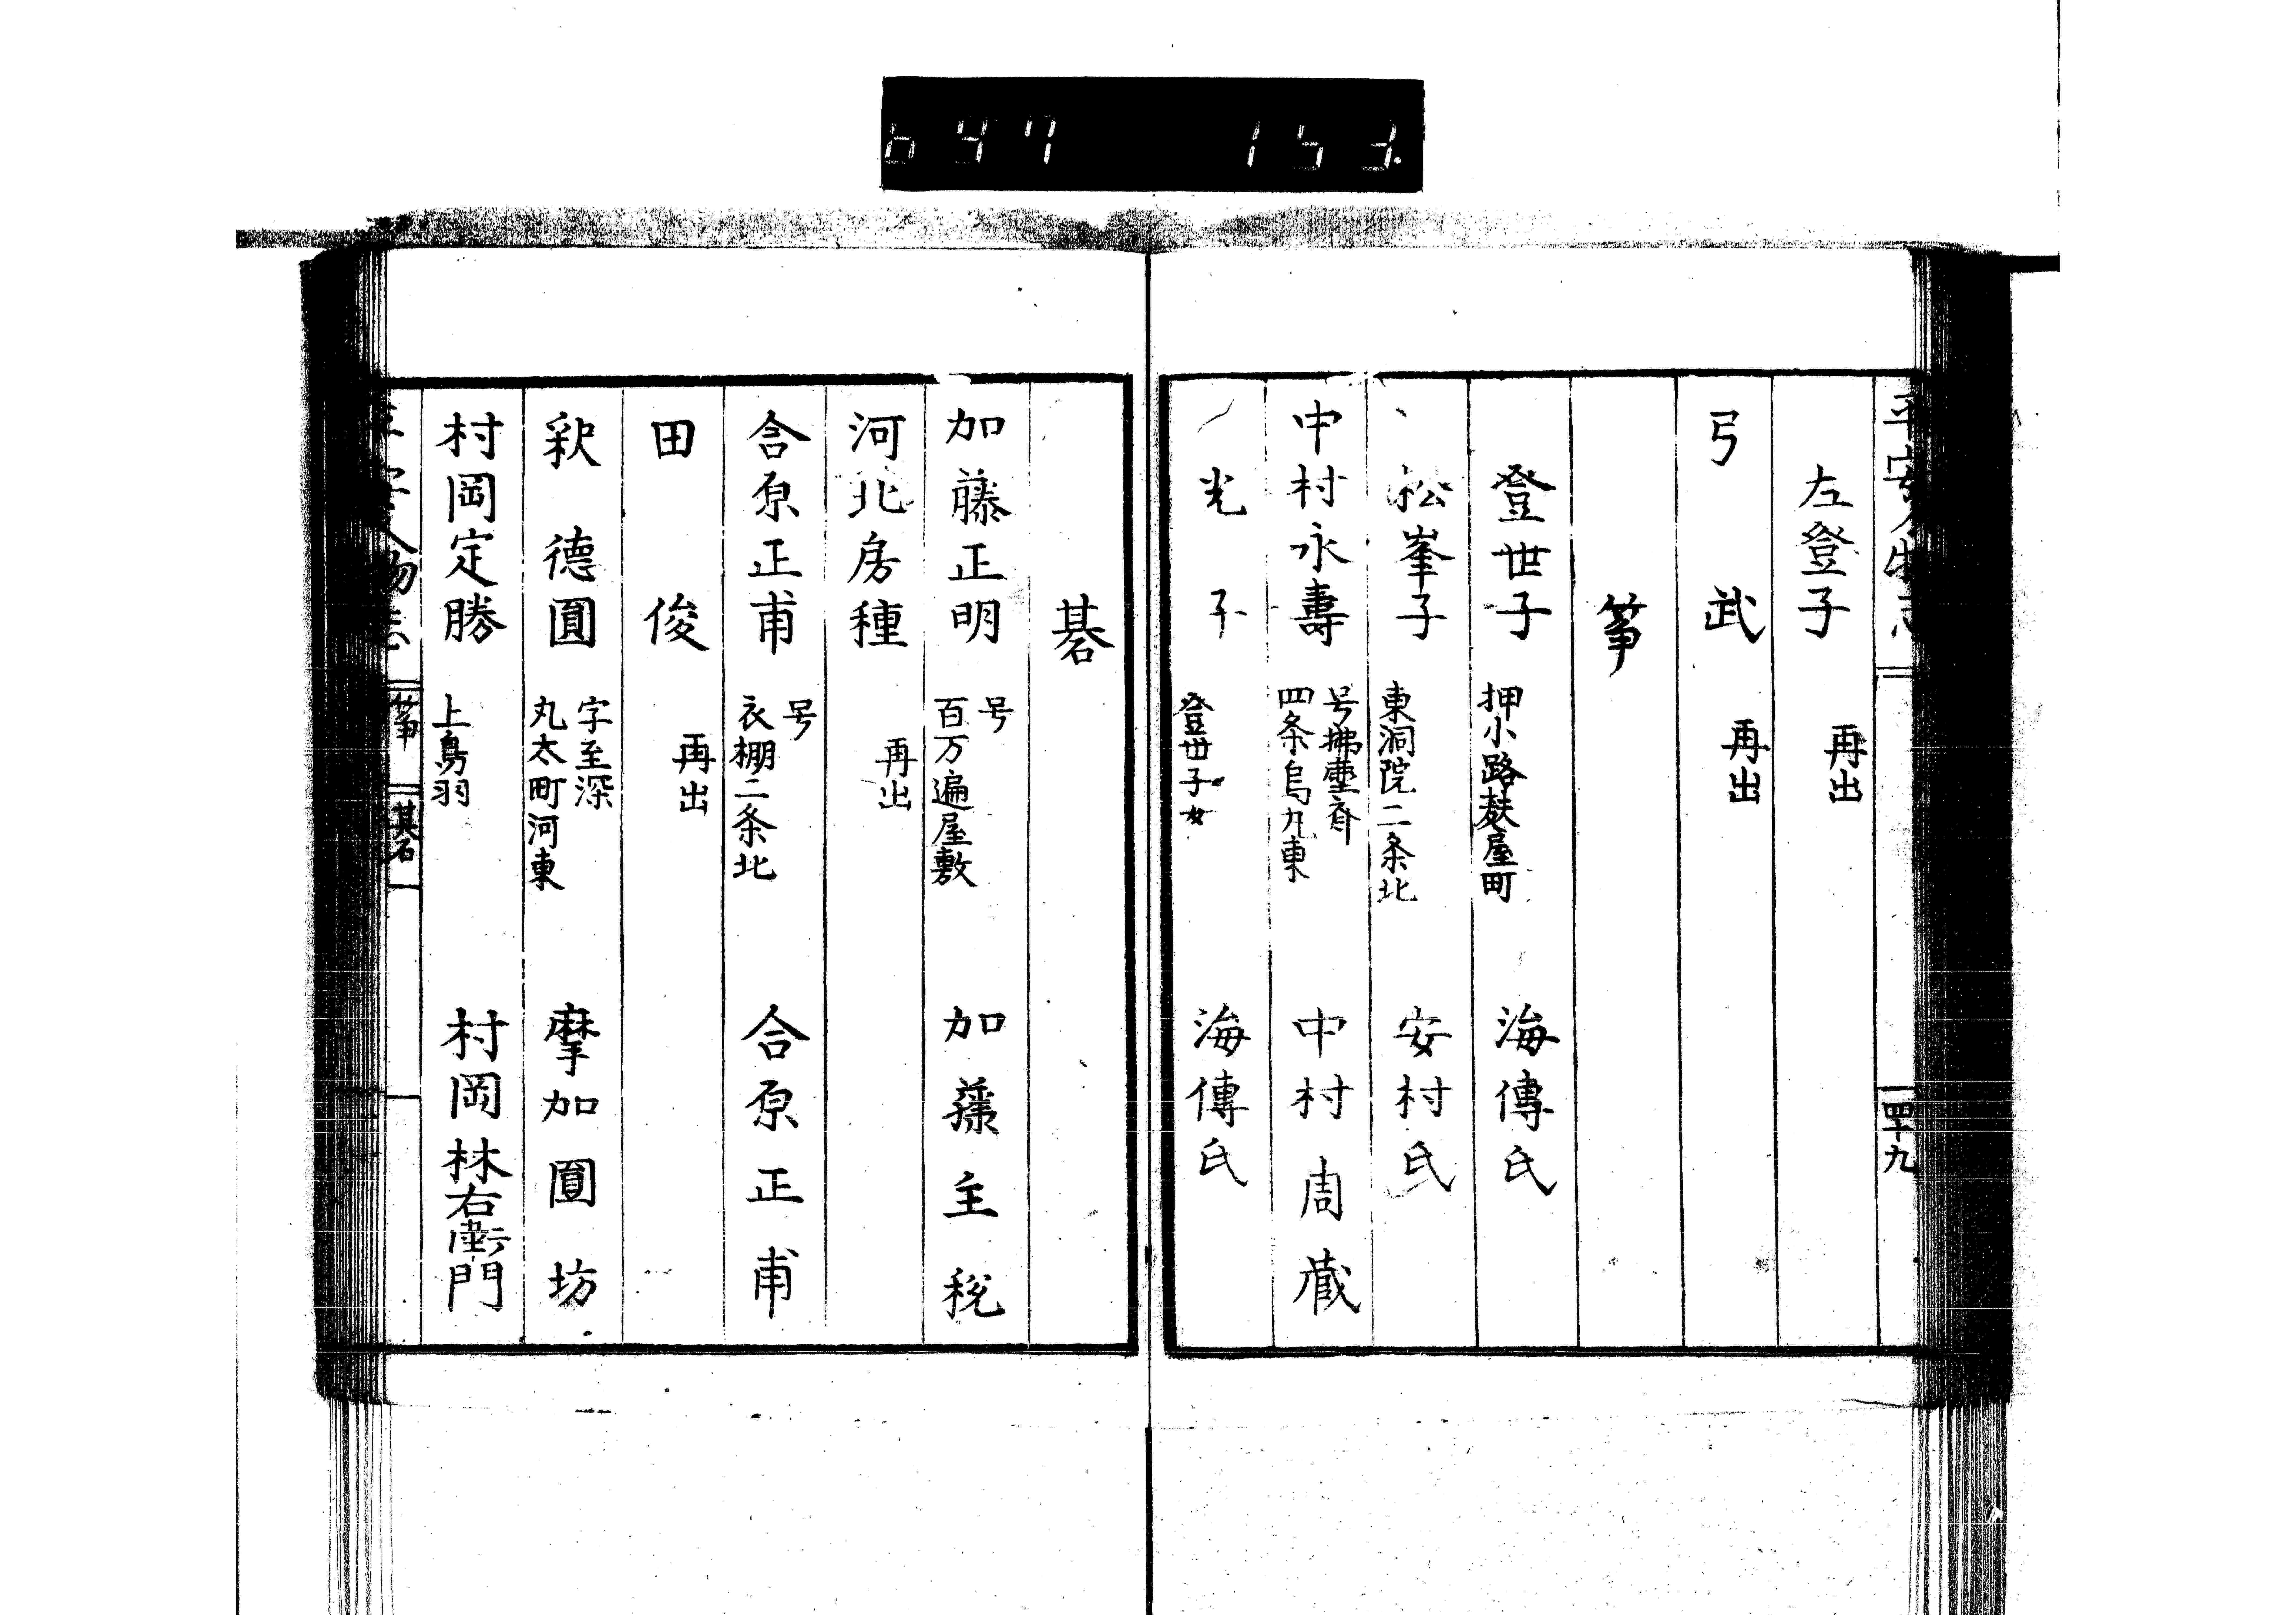 647 153.
平安人物志 四十九
左登子 再出
弓 武 再出
箏
登世子 押小路麸屋町 海傳氏
松峯子 東洞院二条北 安村氏
中村永壽 号拂塵斎 四条烏丸東 中村周蔵
光子 登世子女 海傳氏
碁
加藤正明 号 百万遍屋敷 加藤主税
河北房種 再出
合原正甫 号 衣棚二条北 合原正甫
田 俊 再出
釈 德圓 字至深 丸太町河東 摩加圓坊
村岡定勝 上鳥羽 村岡林右衛門
平安人物志 箏 碁